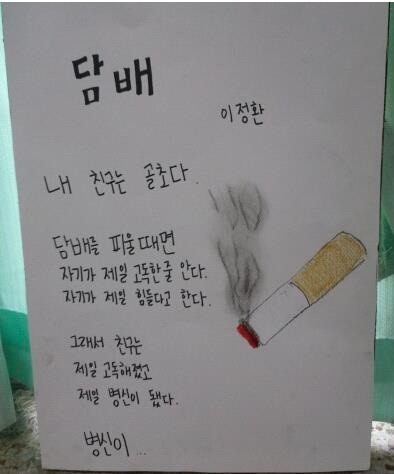 담배
이정환
내 친구는 골초다.
담배를 피울때면
자기가 제일 고독한줄 안다.
자기가 제일 힘들다고 한다.
그래서 친구는
제일 고독해졌고
제일 병신이 됐다.
병신이...